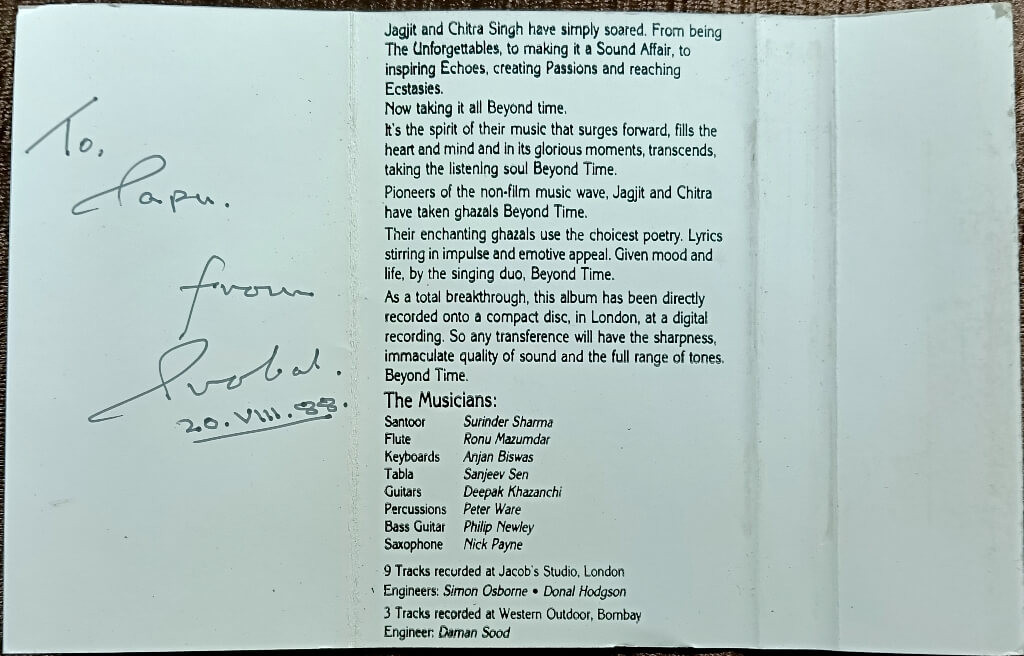 To,
Papu.
from
Probal.
20.VIII.88.
Jagjit and Chitra Singh have simply soared. From being
The Unforgettables, to making it a Sound Affair, to
inspiring Echoes, creating Passions and reaching
Ecstasies.
Now taking it all Beyond time.
It's the spirit of their music that surges forward, fills the
heart and mind and in its glorious moments, transcends,
taking the listening soul Beyond Time.
Pioneers of the non-film music wave, Jagjit and Chitra
have taken ghazals Beyond Time.
Their enchanting ghazals use the choicest poetry. Lyrics
stirring in impulse and emotive appeal. Given mood and
life, by the singing duo, Beyond Time.
As a total breakthrough, this album has been directly
recorded onto a compact disc, in London, at a digital
recording. So any transference will have the sharpness,
immaculate quality of sound and the full range of tones.
Beyond Time.
The Musicians:
Santoor Surinder Sharma
Flute Ronu Mazumdar
Keyboards Anjan Biswas
Tabla Sanjeev Sen
Guitars Deepak Khazanchi
Percussions Peter Ware
Bass Guitar Philip Newley
Saxophone Nick Payne
9 Tracks recorded at Jacob's Studio, London
Engineers: Simon Osborne • Donal Hodgson
3 Tracks recorded at Western Outdoor, Bombay
Engineer: Daman Sood